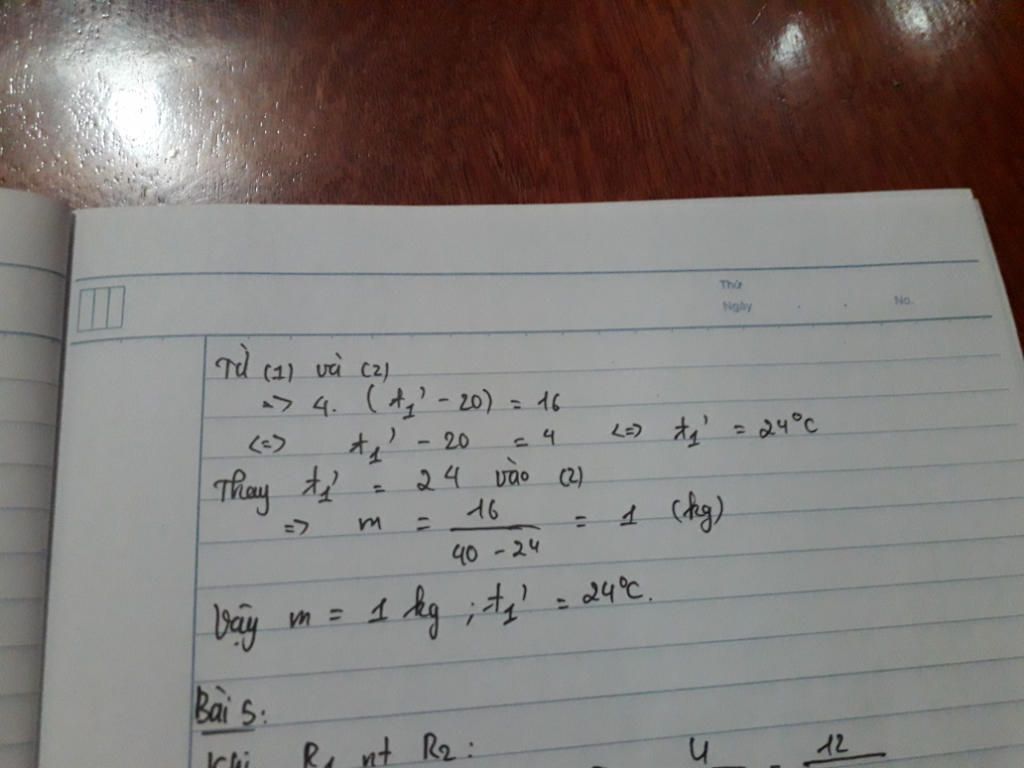 Thứ
Ngày . . No.
Từ (1) và (2)
=> 4. (t₁' - 20) = 16
<=> t₁' - 20 = 4 <=> t₁' = 24°C
Thay t₁' = 24 vào (2)
=> m = 16 / (40 - 24) = 1 (kg)
Vậy m = 1 kg ; t₁' = 24°C.
Bài 5:
Khi R₁ nt R₂: U 12